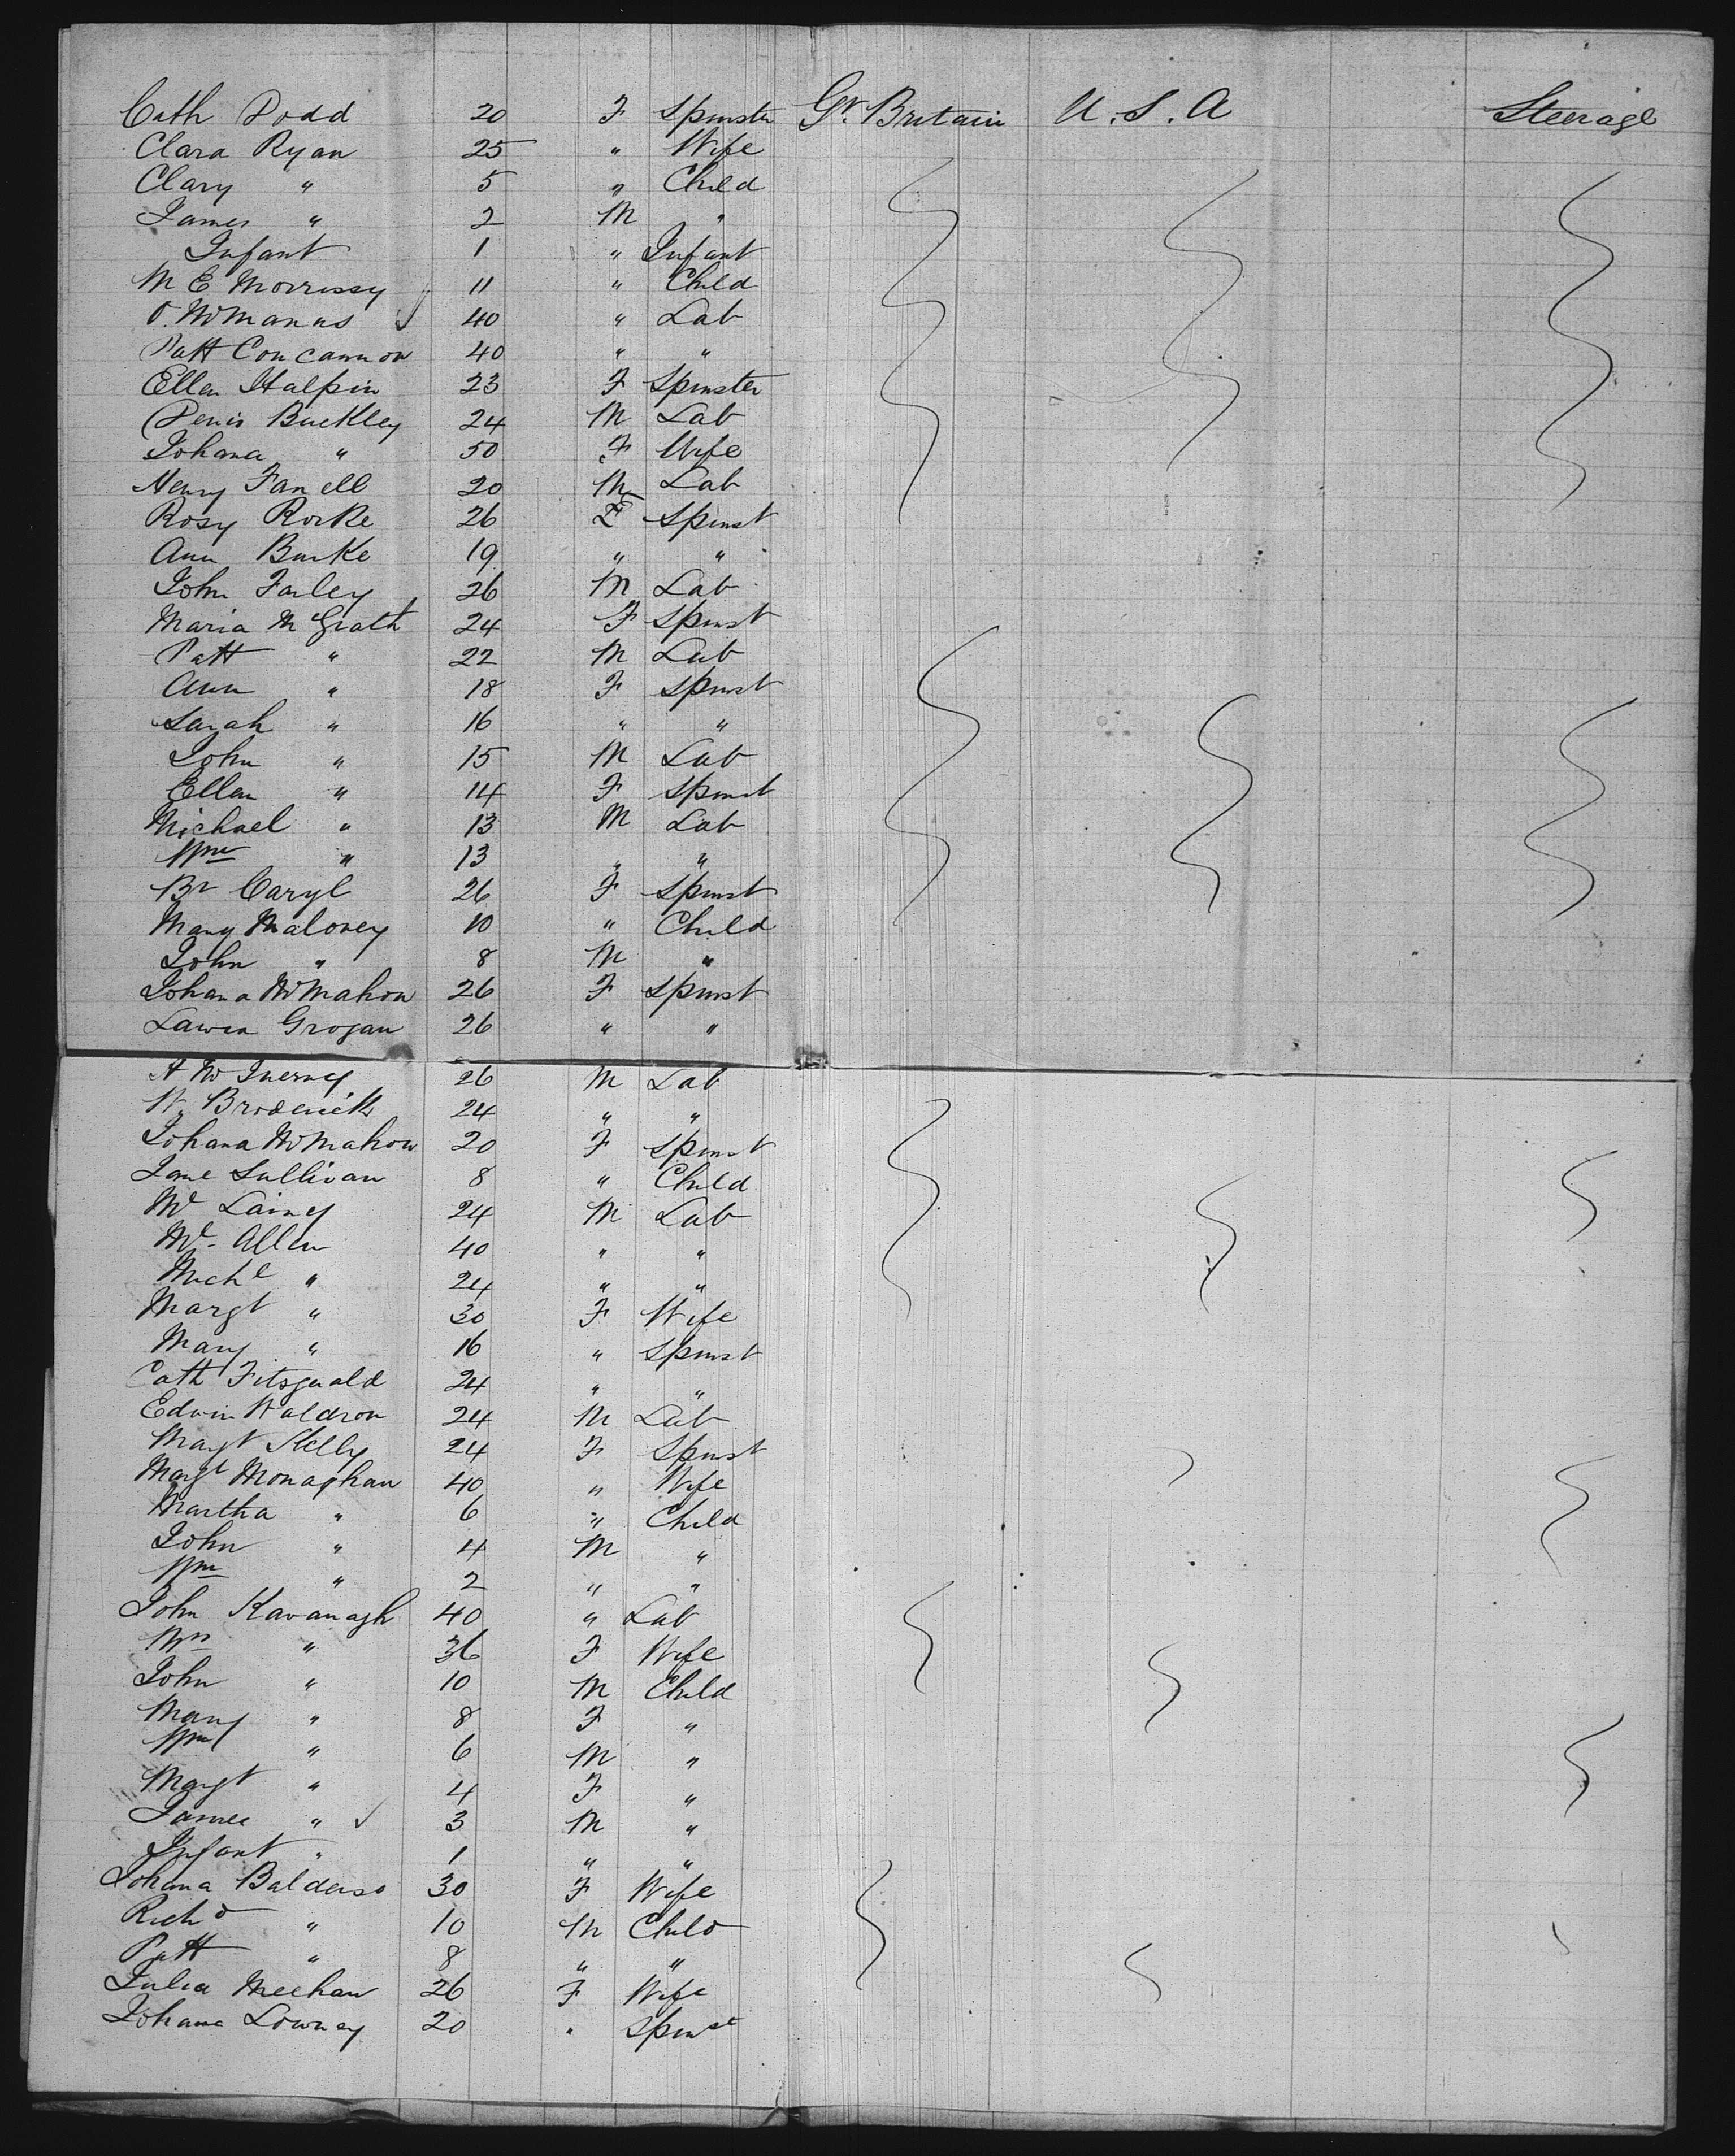 Cath Dodd 20 F Spinster Gt. Britain U.S.A Steerage
Clara Ryan 25 " Wife
Clary " 5 " Child
James " 2 M "
Infant 1 " Infant
M E Morrissy 11 " Child
O. McManus 40 " Lab
Patt Concannon 40 " "
Ellen Halpin 23 F Spinster
Denis Buckley 24 M Lab
Johana " 50 F Wife
Henry Farrell 20 M Lab
Rosy Rorke 26 F Spinst
Ann Burke 19 " "
John Farley 26 M Lab
Maria McGrath 24 F Spinst
Patt " 22 M Lab
Ann " 18 F Spinst
Sarah " 16 " "
John " 15 M Lab
Ellen " 14 F Spinst
Michael " 13 M Lab
Wm " 13 " "
Bt Caryl 26 F Spinst
Mary Maloney 10 " Child
John " 8 M "
Johana McMahon 26 F Spinst
Grogan 26 " "
A McInerney 26 M Lab
Broderick 24 " "
Johana McMahon 20 F Spinst
Jane Sullivan 8 " Child
Ml Lainy 24 M Lab
Ml. Allen 40 " "
Michl " 24 " "
Margt " 30 F Wife
Mary " 16 " Spinst
Cath Fitsgerald 24 " "
Edwin Waldron 24 M Lab
Margt Kelly 24 F Spinst
Margt Monaghan 40 " Wife
Martha " 6 " Child
John " 4 M "
Wm " 2 " "
John Kavanagh 40 " Lab
Mrs " 36 F Wife
John " 10 M Child
Mary " 8 F "
Wm " 6 M "
Margt " 4 F "
James " 3 M "
Infant " 1 " "
Johana Balderso 30 F Wife
Richd " 10 M Child
Patt " 8 " "
Julia Meehan 26 F Wife
Johana Lowney 20 " Spinst